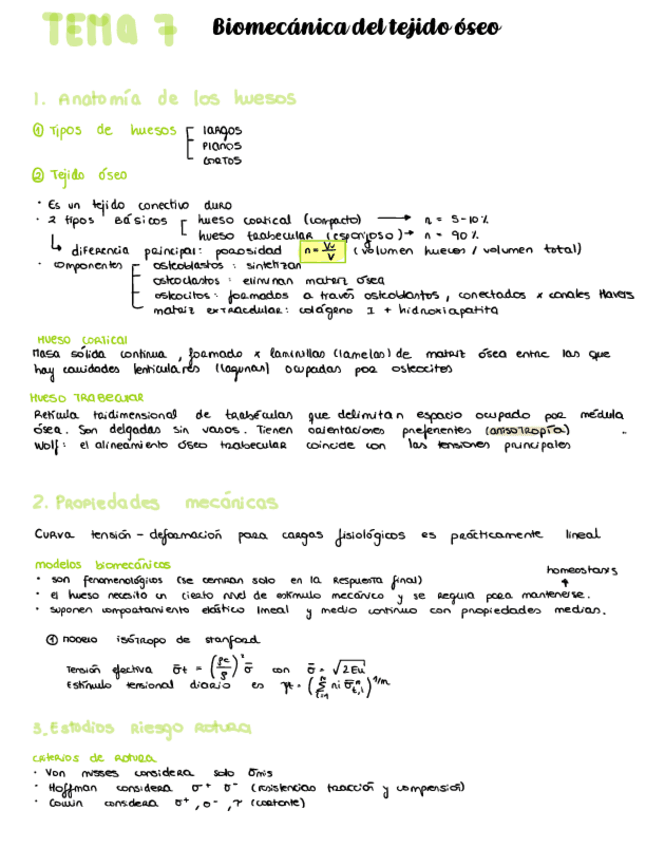 TEMA 7 Biomecánica del tejido óseo
1. Anatomía de los huesos
① Tipos de huesos [ largos
planos
cortos
② Tejido óseo
· Es un tejido conectivo duro
· 2 tipos básicos [ hueso cortical (compacto) → n = 5-10%
hueso trabecular (esponjoso) → n = 90%
↳ diferencia principal: porosidad n = Vv/V (volumen huecos / volumen total)
· componentes [ osteoblastos : sintetizan
osteoclastos : eliminan matriz ósea
osteocitos : formados a través osteoblastos, conectados x canales Havers
matriz extracelular: colágeno I + hidroxiapatita
HUESO CORTICAL
Masa sólida continua, formado x laminillas (lamelas) de matriz ósea entre las que
hay cavidades lenticulares (lagunas) ocupadas por osteocitos
HUESO TRABECULAR
Retícula tridimensional de trabéculas que delimitan espacio ocupado por médula
ósea. Son delgadas sin vasos. Tienen orientaciones preferentes (anisotropía)
Wolf: el alineamiento óseo trabecular coincide con las tensiones principales
2. Propiedades mecánicas
Curva tensión - deformación para cargas fisiológicos es prácticamente lineal
modelos biomecánicos
homeostasis
· son fenomenológicos (se centran solo en la respuesta final)
· el hueso necesita un cierto nivel de estímulo mecánico y se regula para mantenerse.
· suponen comportamiento elástico lineal y medio continuo con propiedades medias.
① modelo isótropo de stanford
Tensión efectiva σ̄t = (ρc/ρ)² σ̄ con σ̄ = √2Eu
Estímulo tensional diario es
3. Estudios Riesgo Rotura
criterios de rotura
· Von misses considera solo
· Hoffman considera σ+ σ- (resistencias tracción y compresión)
· Cowin considera σ+, σ-, τ (cortante)